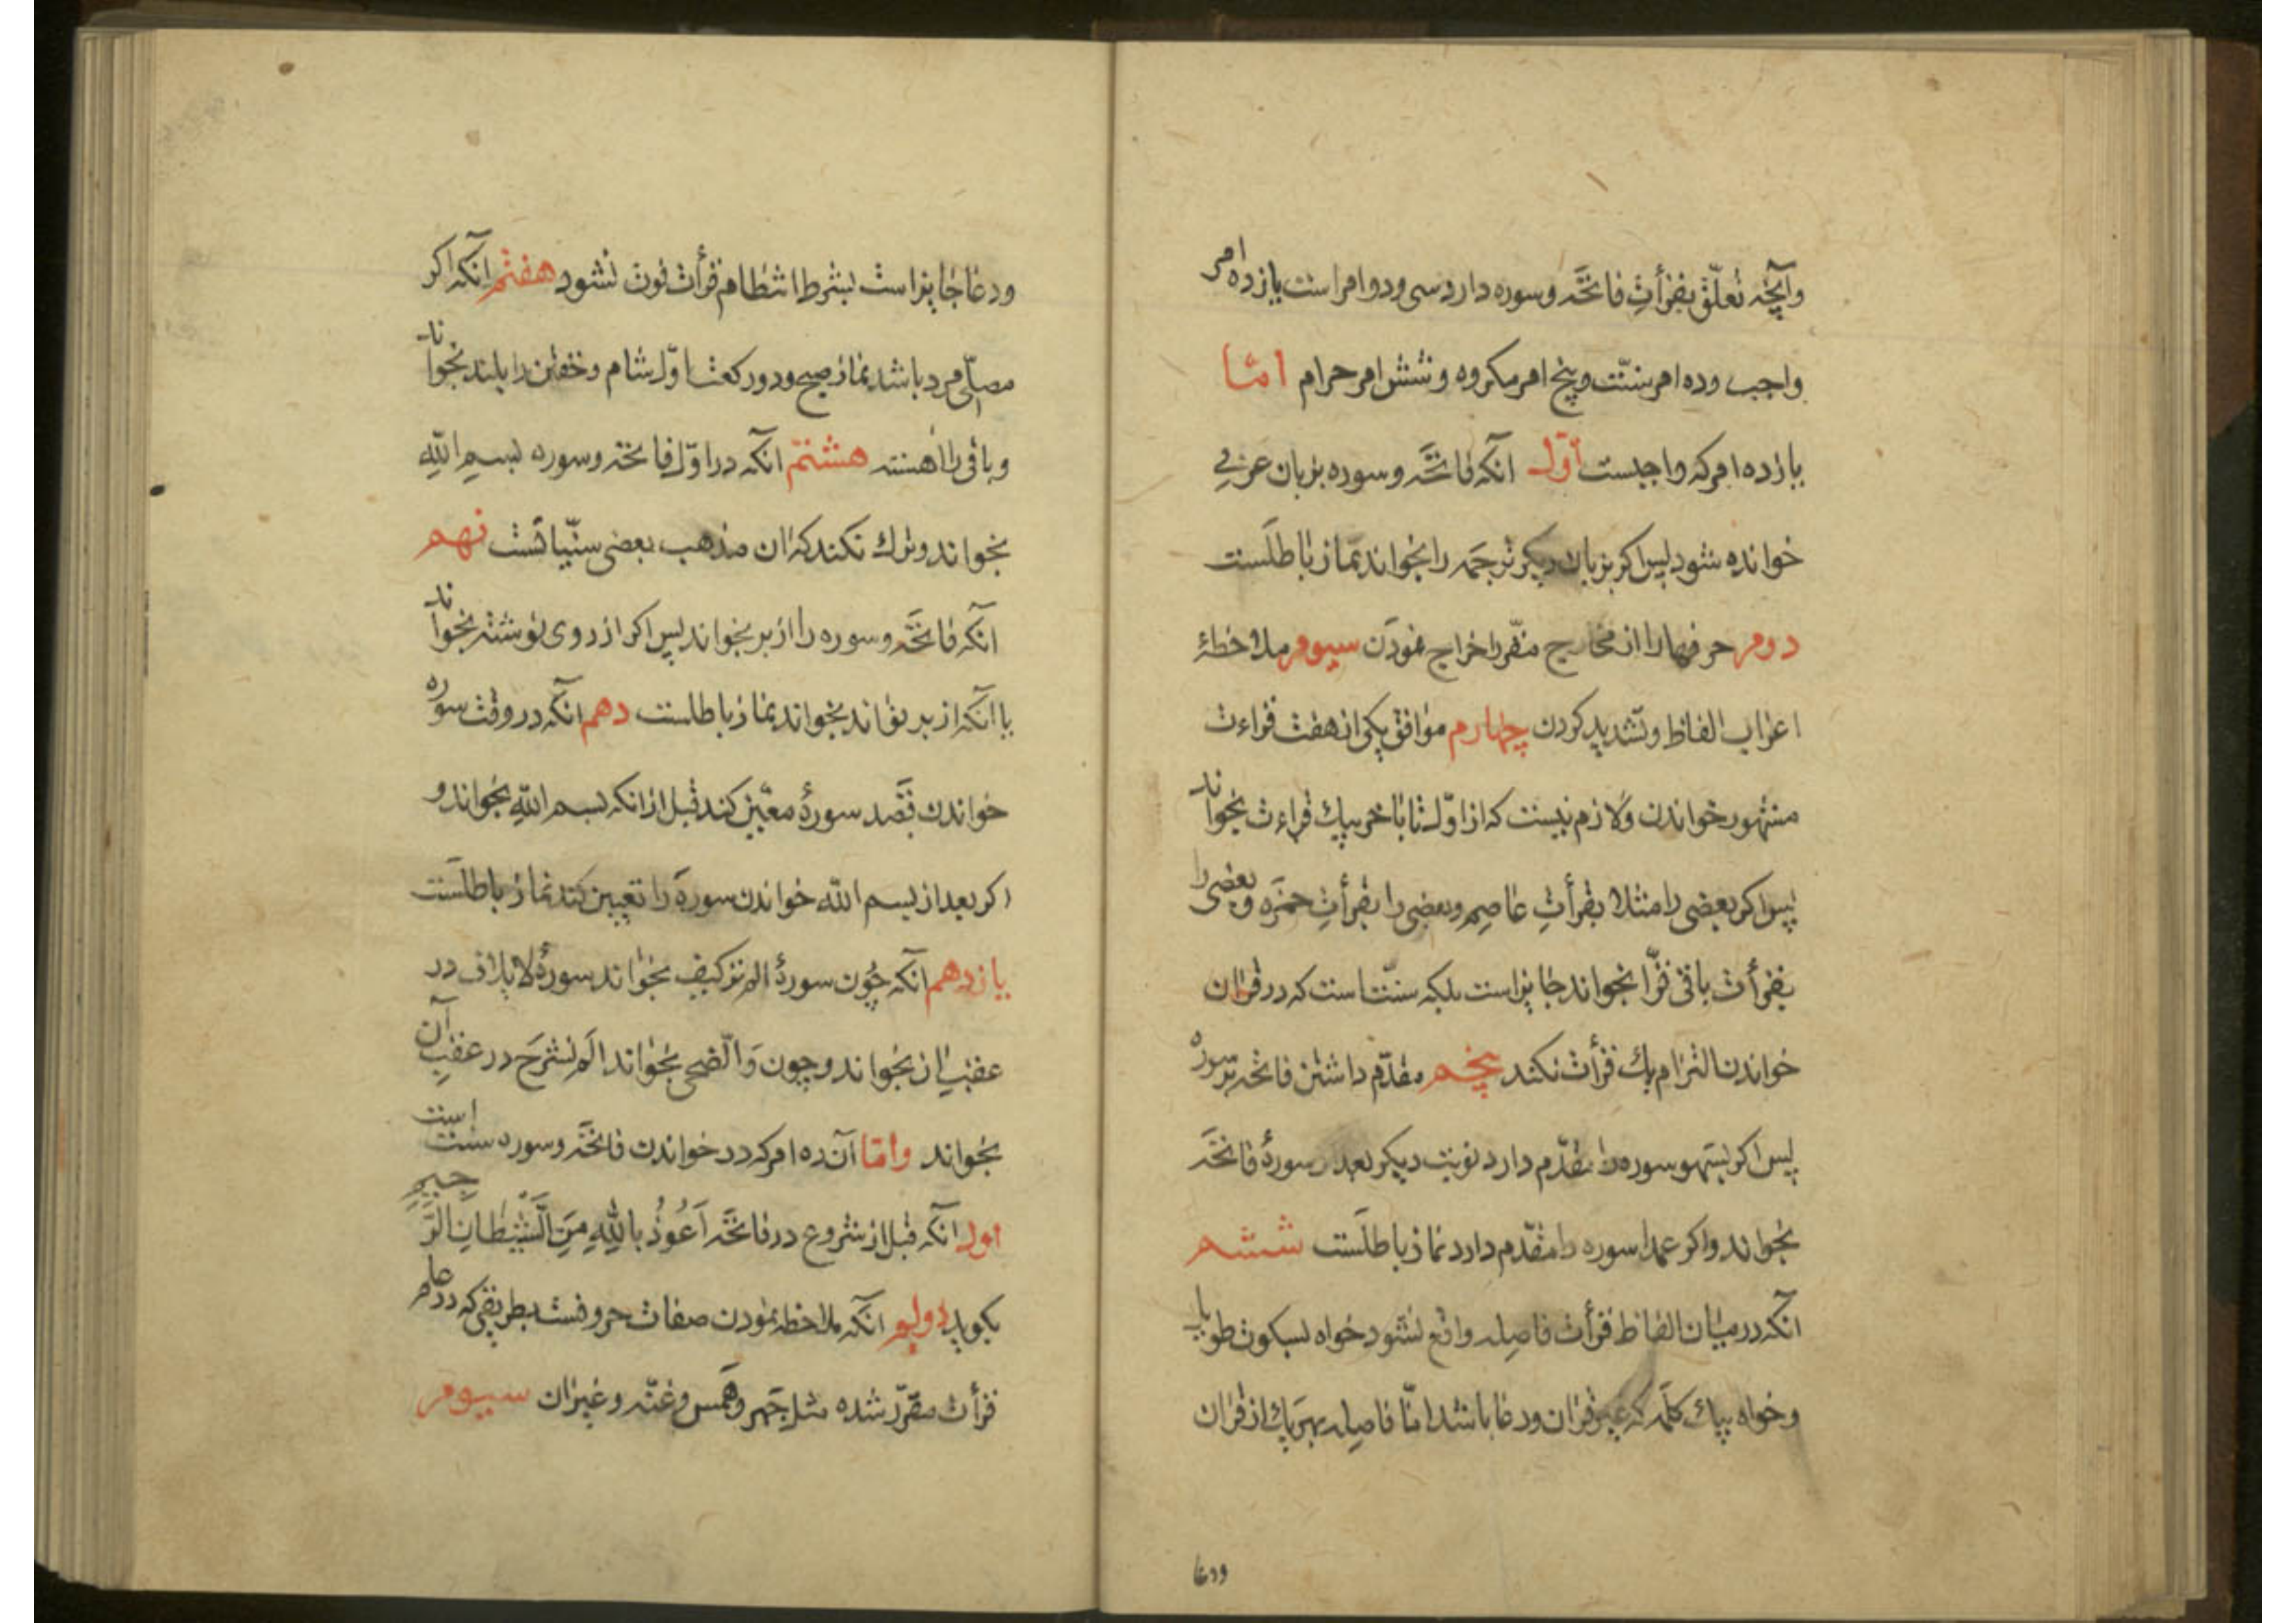 وآنچه تعلّق بقرأتِ فاتحَه وسوره دارد سی ودو امر است یازده امر
واجب وده امر سنّت وپنج امر مکروه وشش امر حرام امّا
یازده امر که واجبست اوّل آنکه فاتحَه وسوره بزبان عربی
خوانده شود پس اکر بزبان دیکر ترجَمه را بخواند نماز باطلَست
دوم حرفها را از مخارج مقّرر اخراج نمودَن سیوم ملاحظهٔ
اعراب الفاظ وتشدید کردن چهارم موافق یکی از هفت قراءت
مشهور خواندن ولازم نیست که از اوّل تا باخر بیک قراءت بخواند
پس اکر بعضی را مثلا بقرأتِ عاصِم وبعضی را بقرأتِ حمزَه وبعضی را
بقرأت باقی قرّا بخواند جایز است بلکه سنّت است که در قران
خواندن التزام یک قرأت نکند پنجم مقدّم داشتن فاتحَه بر سوره
پس اکر بسَهو سوره را مقدّم دارد نوبت دیکر بعد از سورهٔ فاتحَه
بخواند واکر عمدا سوره را مقدّم دارد نماز باطلَست ششم
آنکه در میان الفاظ قرأت فاصِله واقع نشود خواه بسکوت طویل
وخواه بیک کلَمه که غیر قران ودعا باشد امّا فاصِله بهریک از قران
ودعا
ودعا جایز است بشرط انتظام قرأت فوت نشود هفتم آنکه اکر
مصلّی مرد باشد نماز صبح ودو رکعت اوّل شام وخفتن را بلند بخواند
وباقی را اهسته هشتم آنکه در اوّل فاتحَه وسوره بسم اللّه
بخواند وترک نکند که ان مذهب بعضی سنّیانست نهم
آنکه فاتحَه وسوره را از بر بخواند پس اکر از روی نوشته بخواند
با آنکه از بر تواند بخواند نماز باطلست دهم آنکه در وقت سوره
خواندن قَصد سورهٔ معیّن کند قبل از انکه بسم اللّه بخواند و
اکر بعد از بسم اللّه خواندن سوره را تعیین کند نماز باطلَست
یازدهم آنکه چُون سورهٔ الم تر کیف بخواند سورهٔ لایلاف در
عقبِ ان بخواند وچون والضحی بخواند الَم نشرَح در عقبِ آن
بخواند وامّا آن ده امر که در خواندن فاتحَه وسوره سنت است
اول آنکه قبل از شروع در فاتحَه اَعُوذُ بِاللّهِ مِنَ الشَّیْطانِ الرَّجیمِ
بکوید دویم آنکه ملاحظه نمودن صفات حروفست بطریقی که در علم
قرأت مقرّر شده مثل جَهر وهَمس وغنّه وغیر ان سیوم